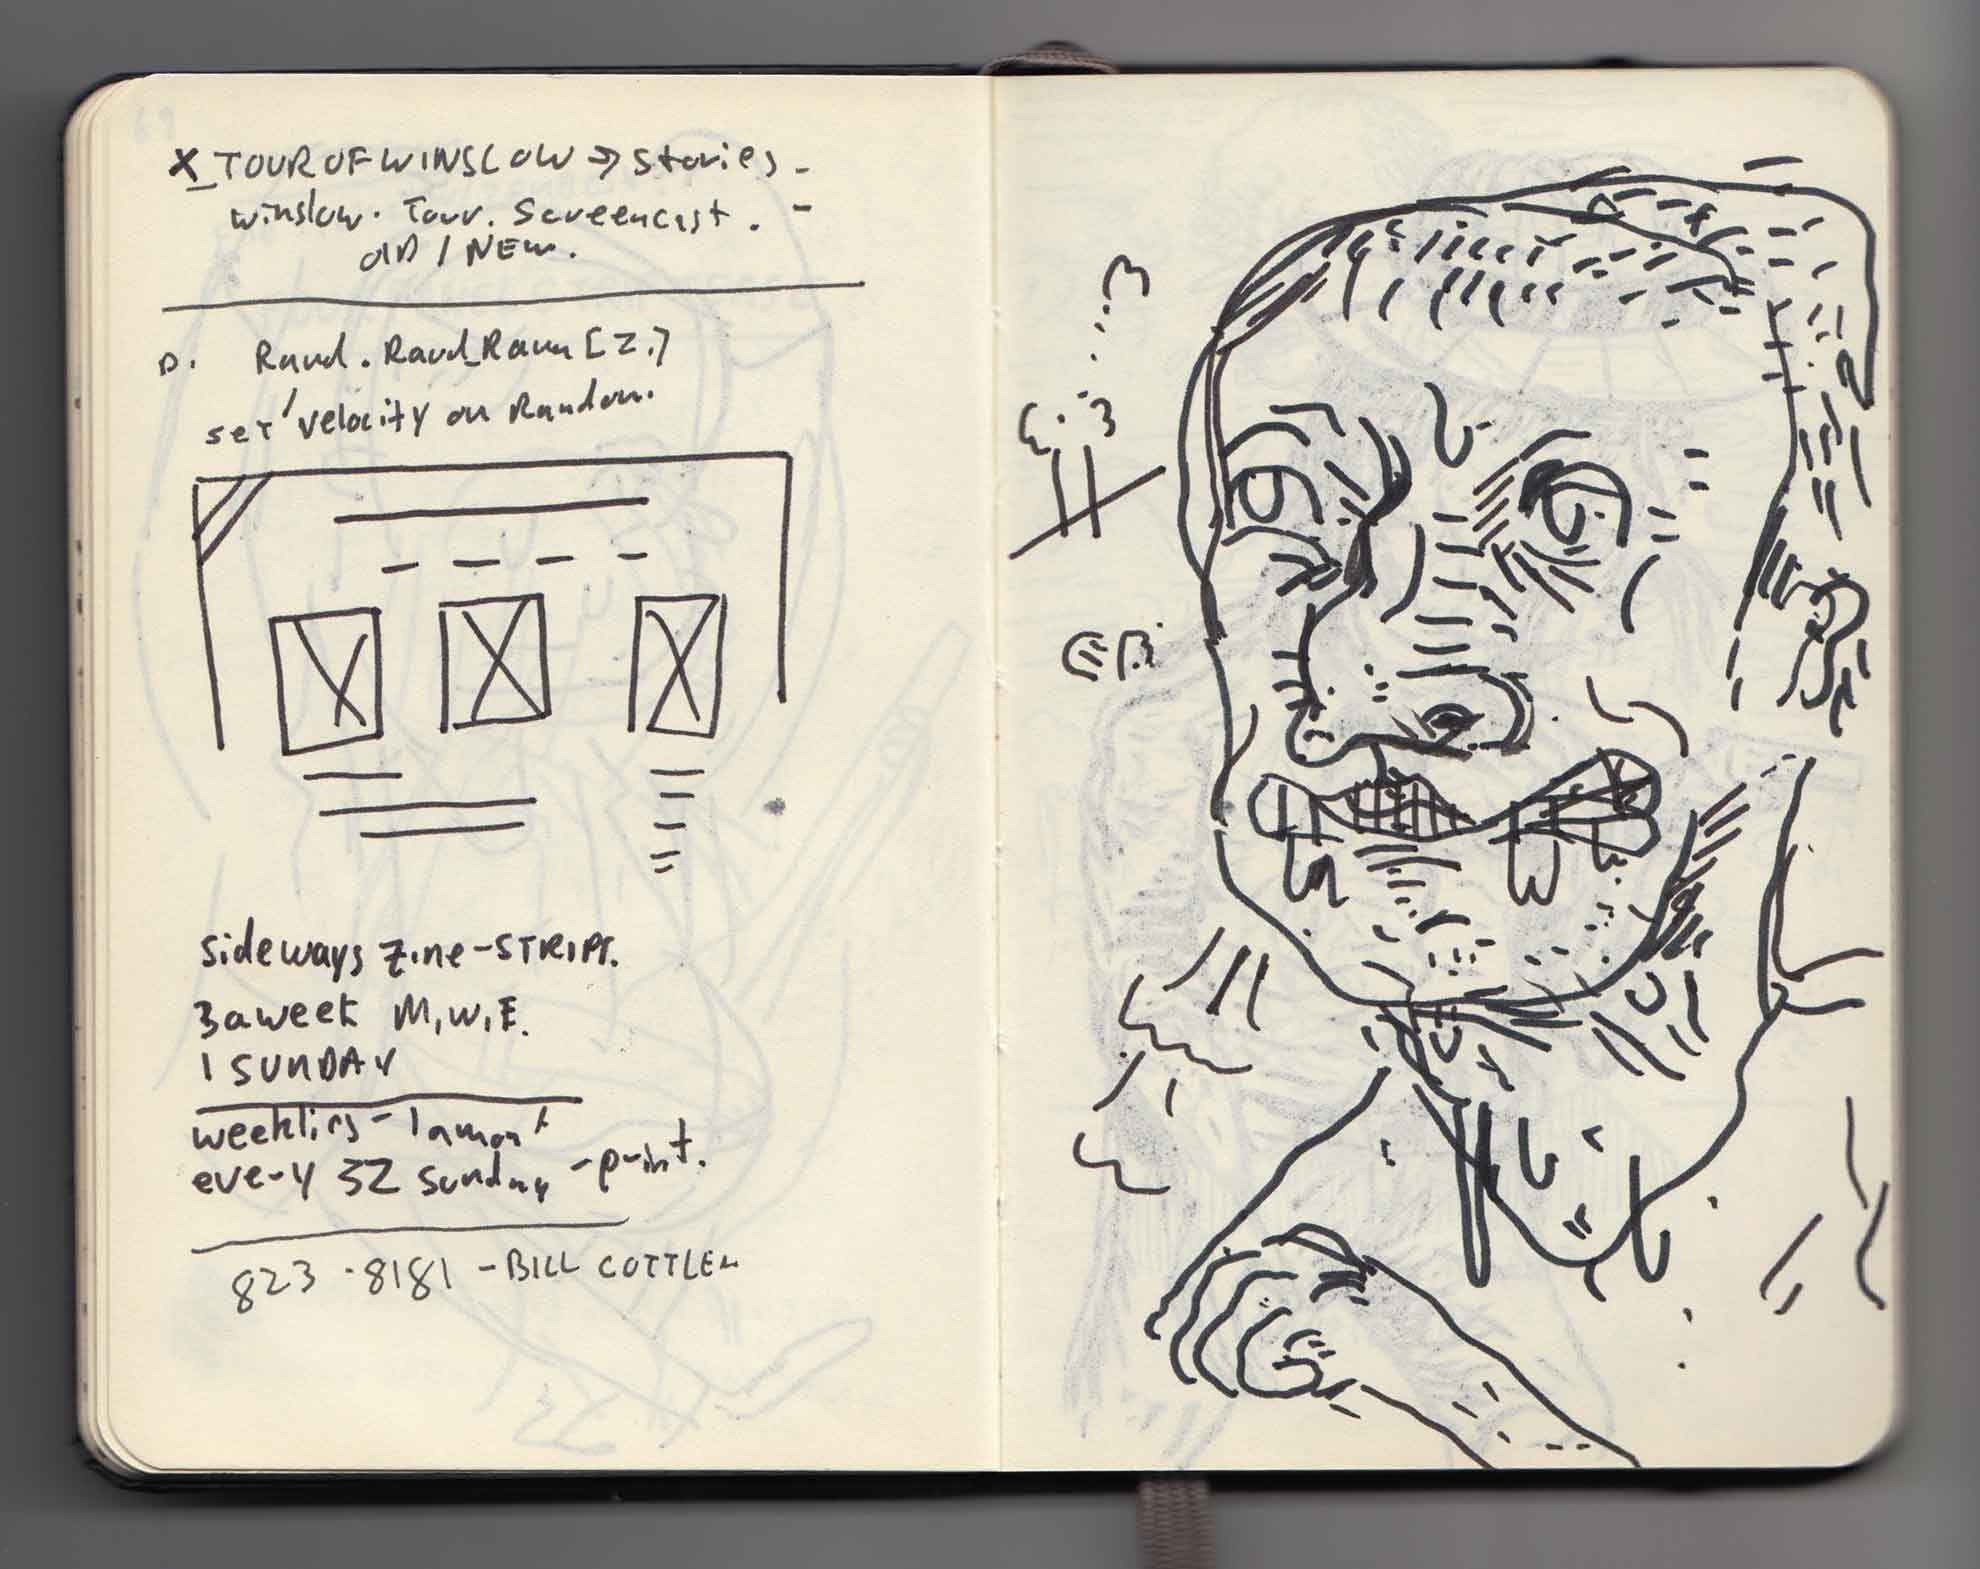 X_TOUR OF WINSLOW → stories -
winslow. Tour. Screencast. -
OLD / NEW.
D. Rand. Rand_Ranu [2.]
set velocity on Random.
sideways zine-STRIPS.
3 a week M, W, F.
1 SUNDAY
weeklies - 1 a
every 32 sunday - print.
823-8181 - BILL